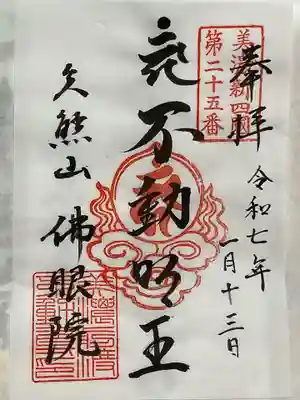 美濃新四国
第二十五番
奉拝
令和七年
一月十三日
不動明王
久熊山
佛眼院